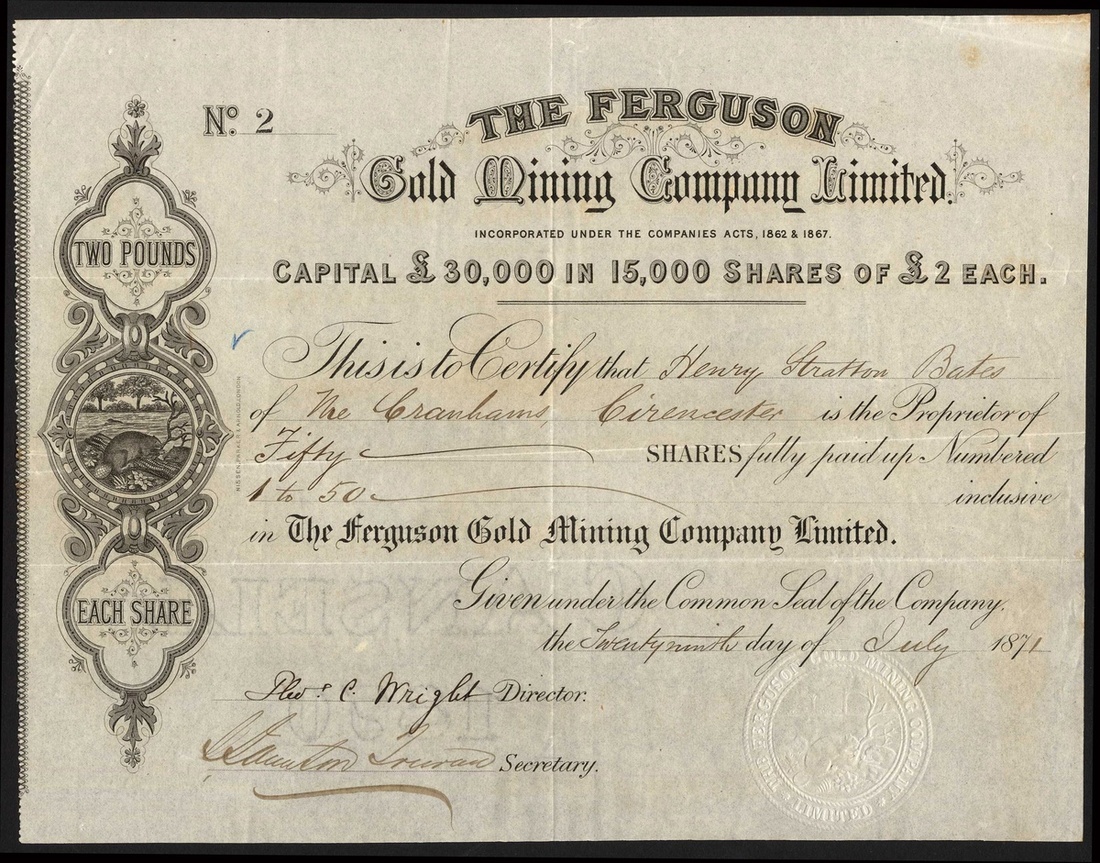 No. 2
THE FERGUSON
Gold Mining Company Limited.
INCORPORATED UNDER THE COMPANIES ACTS, 1862 & 1867.
CAPITAL £30,000 IN 15,000 SHARES OF £2 EACH.
TWO POUNDS
EACH SHARE
This is to Certify that Henry Stratton Bates
of The Cranhams, Cirencester is the Proprietor of
Fifty SHARES fully paid up Numbered
1 to 50 inclusive
in The Ferguson Gold Mining Company Limited.
Given under the Common Seal of the Company,
the Twentyninth day of July 1871
Thos. C. Wright Director.
Secretary.
THE FERGUSON GOLD MINING COMPANY
LIMITED